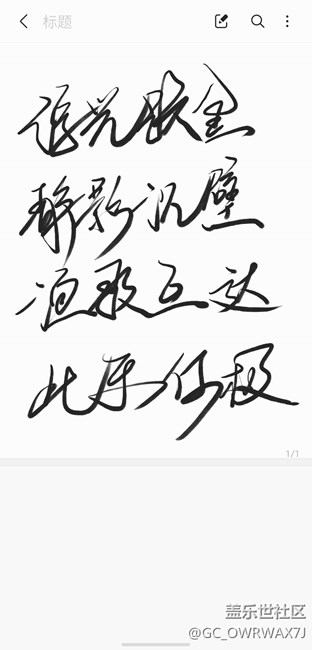 标题
浮光跃金
静影沉璧
渔歌互答
此乐何极
1/1
盖乐世社区
@GC_OWRWAX7J